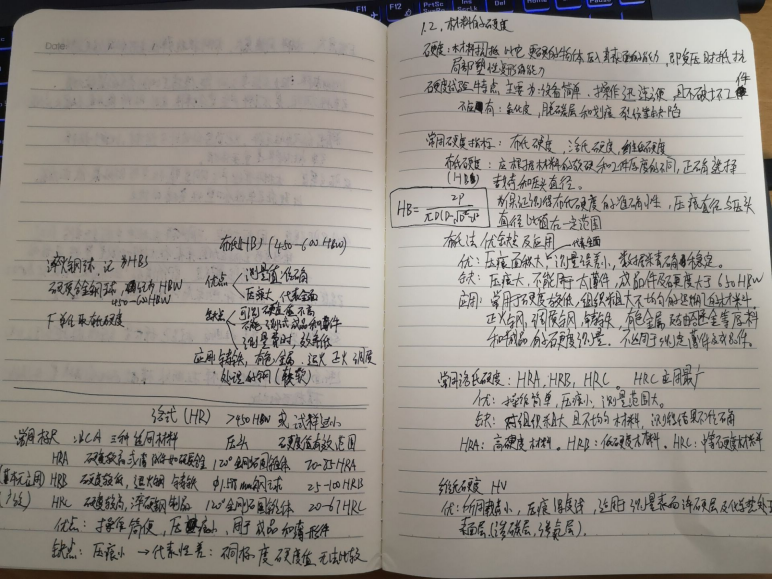 Date:
布氏(HB) (450-600HBW)
淬火钢球,记为HBS
硬质合金钢球,记为HBW
450~600HBW
优点 测量值准确
压痕大 代表全面
缺点 可测硬度值不高
不能测试成品和薄件
测量费时,效率低
应用 铸铁,有色金属,退火 正火 调质
处理的钢(较软)
洛氏(HR) >450HBW 或 试样过小
常用标尺 ABC三种 适用材料 压头 硬度值有效范围
HRA 120°金刚石圆锥体 70-85HRA
HRB 硬度较低,退火钢 铸铁 钢球 25-100HRB
HRC 硬度较高,淬硬钢制品 120°金刚石圆锥体 20-67HRC
优点:操作简便,压痕小,用于成品和薄形件
缺点:压痕小 → 代表性差:不同标度硬度值无法比较
1.2、材料的硬度
硬度:材料抵抗比它更硬的物体压入其表面的能力,即受压时抵抗
局部塑性变形的能力
硬度试验特点,主要为设备简单,操作迅速方便,且不破坏工件
常用硬度指标:布氏硬度,洛氏硬度,维氏硬度
布氏硬度:应根据材料的软硬和工件厚度的不同,正确选择
(HB) 载荷和压头直径。
HB=2P/πD(D-√D²-d²)
为保证测得布氏硬度的准确性,压痕直径与压头
直径比值在一定范围
布氏法/优缺点及应用
优:压痕面积大,测量误差小,数据准确稳定。
缺:压痕大,不能用于太薄件,成品件及硬度大于650HBW
应用:常用于硬度较低,组织粗大不均匀的退火钢材料。
正火钢,调质钢,铸铁,有色金属 等原料
和半成品的硬度测量。不适用于测定薄件或成品件。
常用洛氏硬度:HRA、HRB、HRC。HRC应用最广
优:操作简单,压痕小,测量范围大。
缺:对组织粗大且不均匀材料,测得结果不准确
HRA:高硬度材料。HRB:低硬度材料。HRC:中等硬度材料
维氏硬度 HV
优:压痕小,压痕深度浅,适用于测量表面淬硬层及化学热处
表面层(渗碳层,渗氮层)。